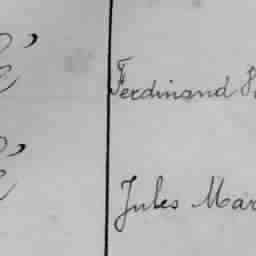 Ferdinand
Jules Mar